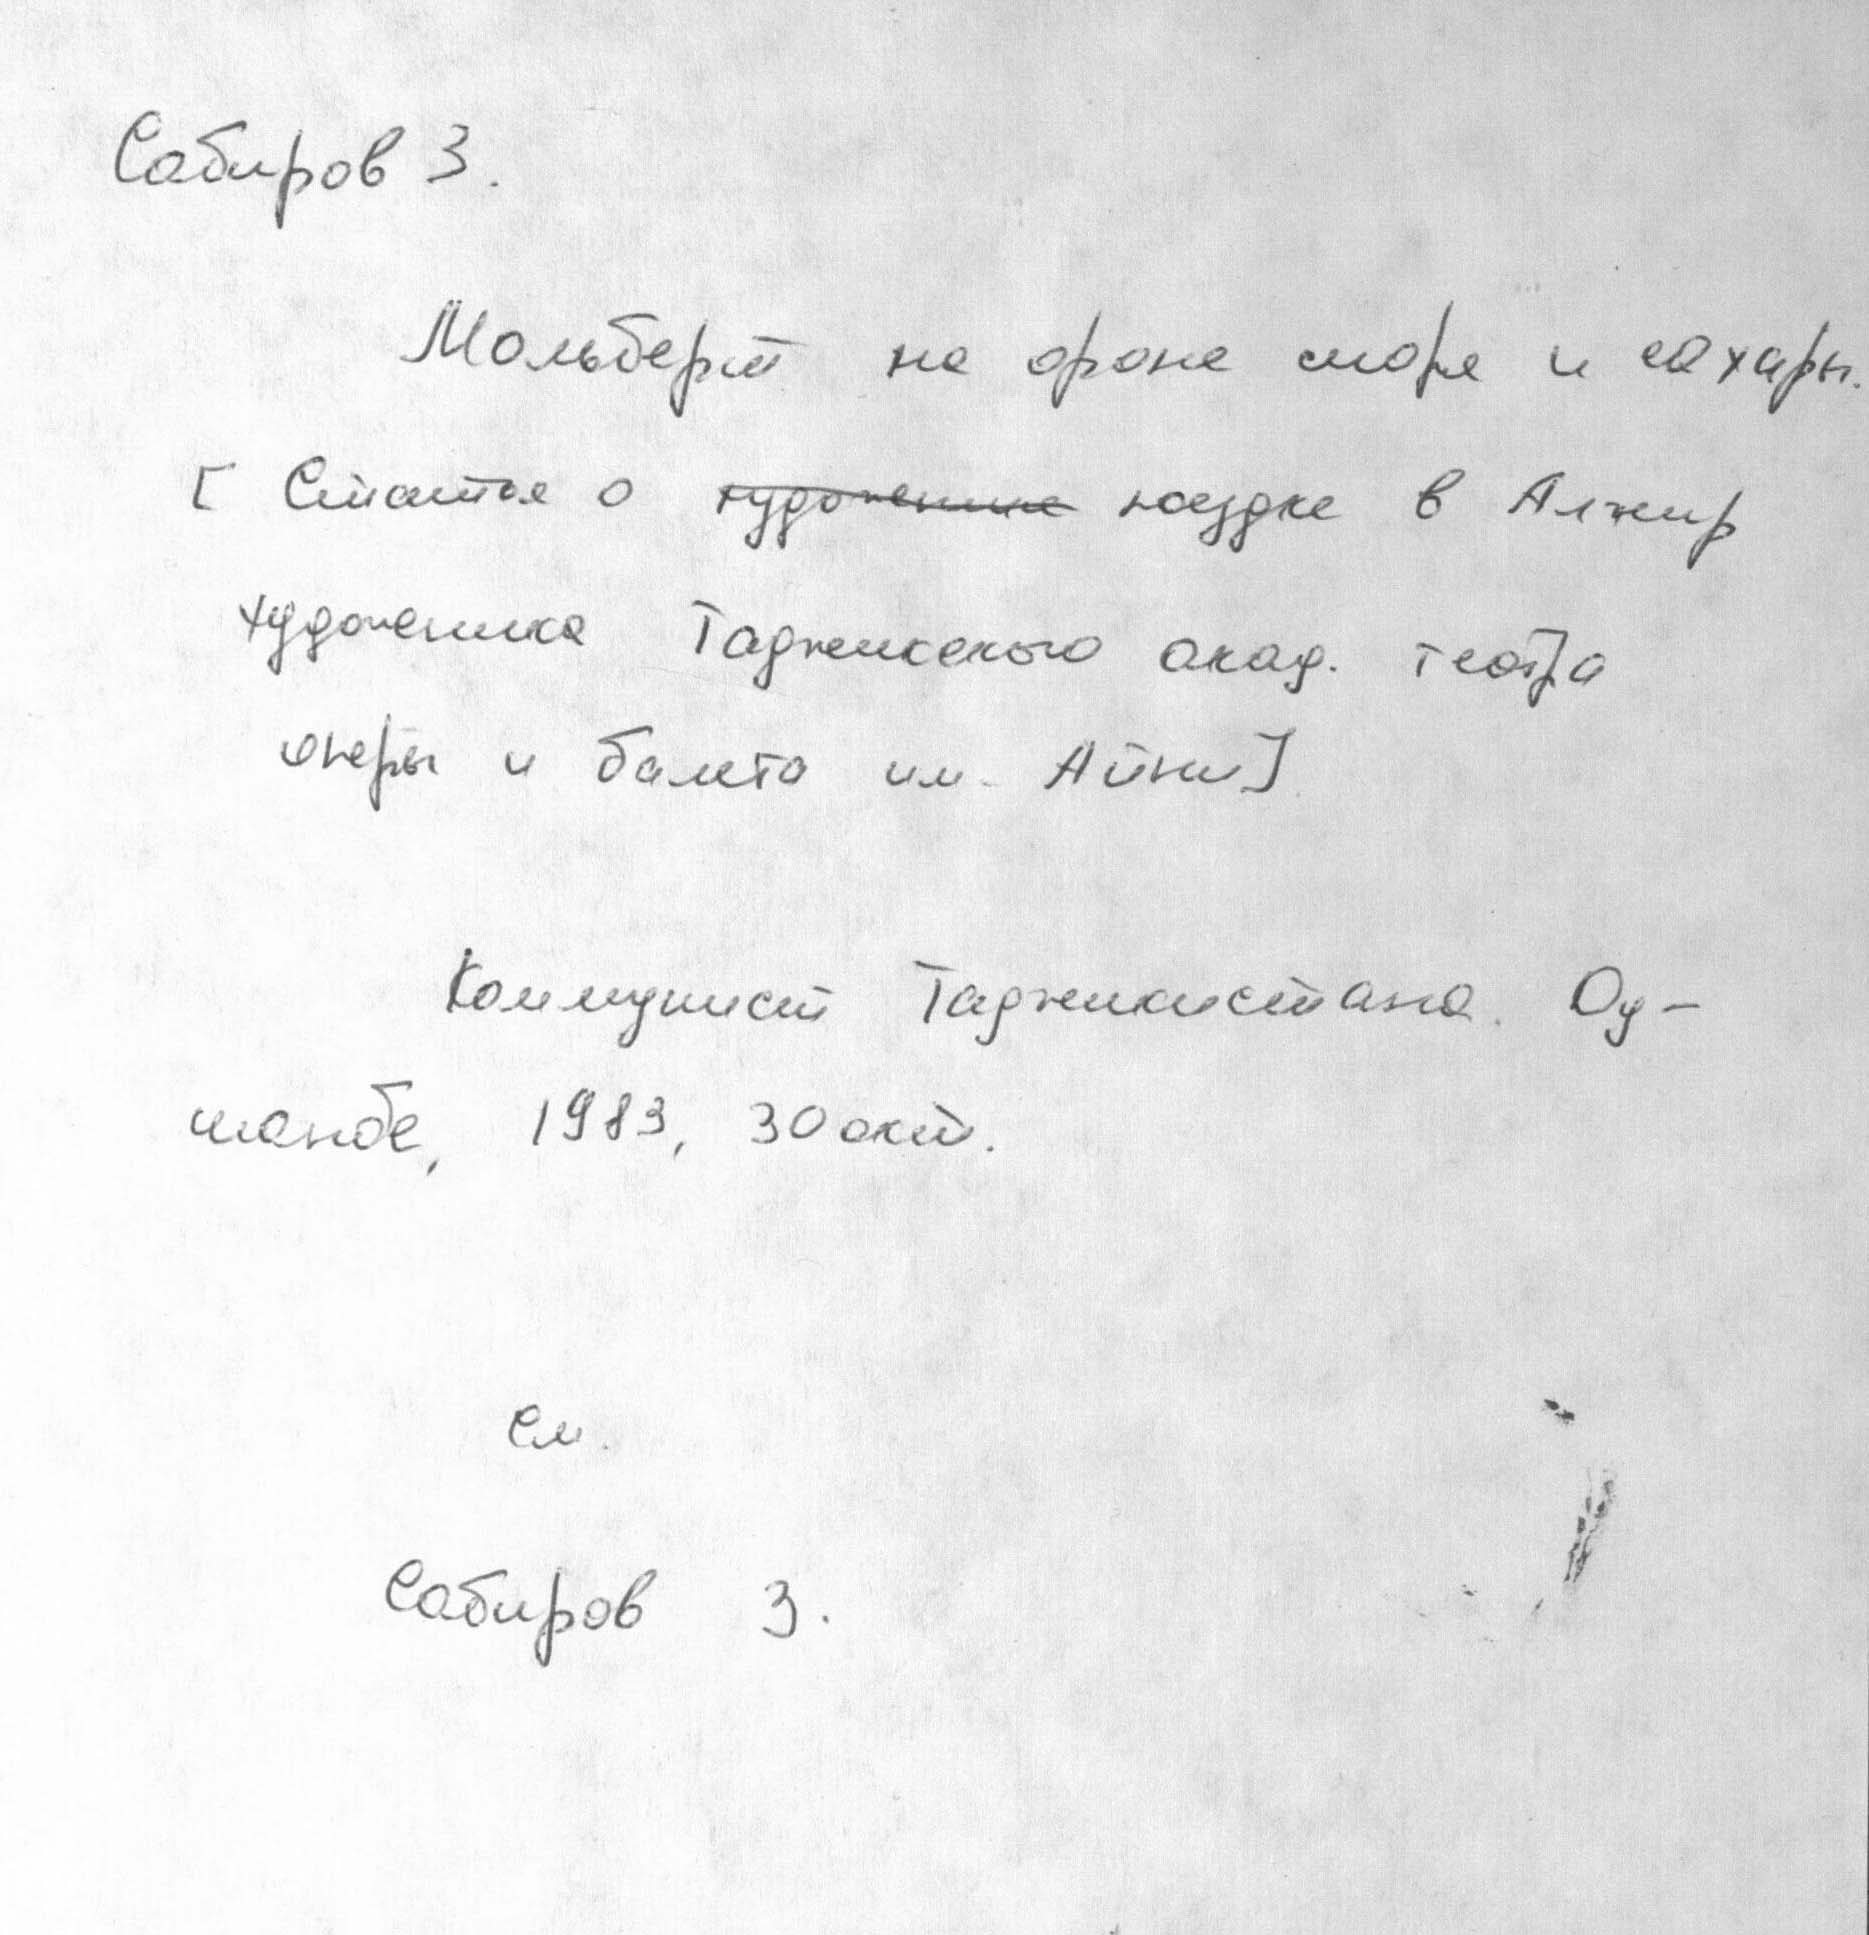 Сабиров З.
Мольберт на фоне моря и сахары.
[ Статья о ~~художнике~~ поездке в Алжир
художника Таджикского акад. театра
оперы и балета им. Айни]
Коммунист Таджикистана. Ду-
шанбе, 1983, 30 окт.
См.
Сабиров З.